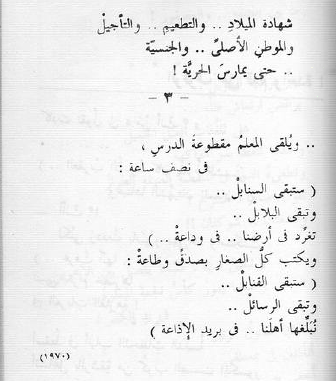 شهادة الميلادِ .. والتطعيم .. والتأجيلْ
والموطنِ الأصلىِّ .. والجنسيّة
.. حتىٰ يمارسَ الحريّة !
- ٣ -
.. ويُلقى المعلمُ مقطوعةَ الدرسِ ،
فى نصف ساعة :
( ستبقى السنابلْ ..
وتبقى البلابلْ ..
تغرّد فى أرضنا .. فى وداعةْ .. )
ويكتب كلُّ الصغار بصدقٍ وطاعة :
( ستبقى القنابلْ ..
وتبقى الرسائلْ ..
نُبلّغها أهلَنا .. فى بريد الإذاعة )
(١٩٧٠)